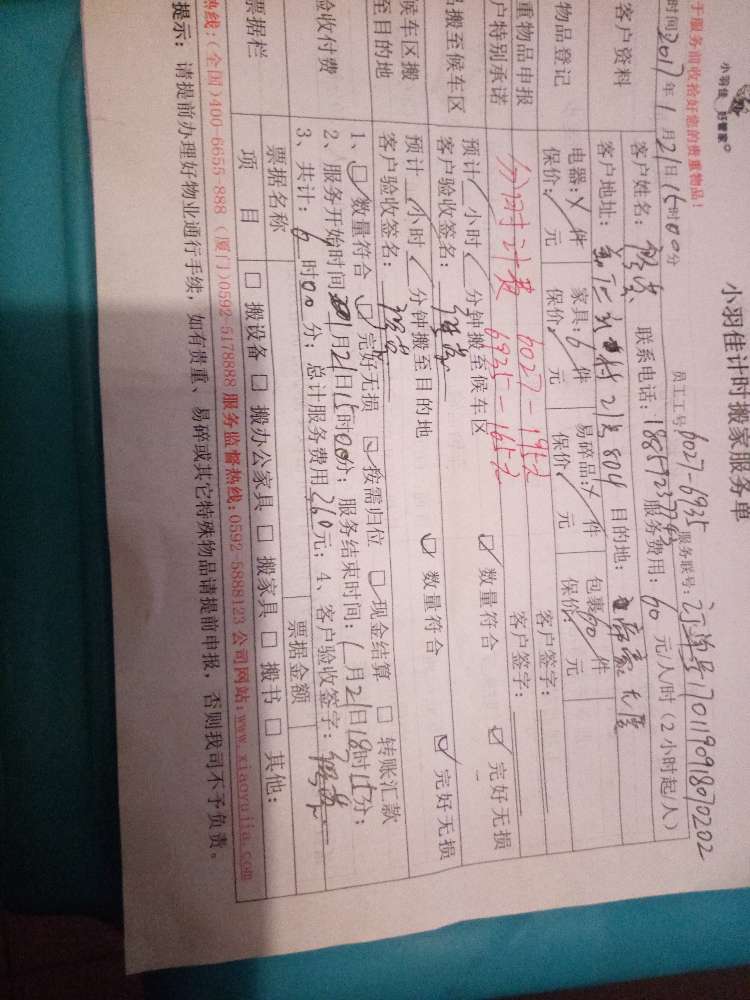 小羽佳 好管家
小羽佳计时搬家服务单
于服务前收拾好您的贵重物品！ 员工工号 6027-6935 服务联号：订单号
时间 2017年1月21日15时00分
客户资料 客户姓名： 联系电话： 服务费用：60元/人/时（2小时起/人）
客户地址： 21号804 目的地：
物品登记 电器：件 家具：6件 易碎品：件 包裹60件
保价： 元 保价： 元 保价： 元 保价 元
重物品申报 分时计费 6027-195元 客户签字：
户特别承诺 6935-165元 客户签字：
品搬至候车区 预计 小时 分钟搬至候车区 数量符合 完好无损
客户验收签名：
候车区搬 预计 小时 分钟搬至目的地 数量符合 完好无损
至目的地 客户验收签名：
验收付费 1、 数量符合 完好无损 按需归位 现金结算 转账汇款
2、服务开始时间 1月21日15时00分；服务结束时间：1月21日18时15分；
3、共计： 时00分；总计服务费用 元；4、客户验收签字：
票据栏 票据名称 票据金额
项 目 搬设备 搬办公家具 搬家具 搬书 其他：
热线：（全国）400-6655-888（厦门）0592-5178888 服务监督热线：0592-5888123 公司网站：www.xiaoyujia.com
提示：请提前办理好物业通行手续，如有贵重、易碎或其它特殊物品请提前申报，否则我司不予负责。